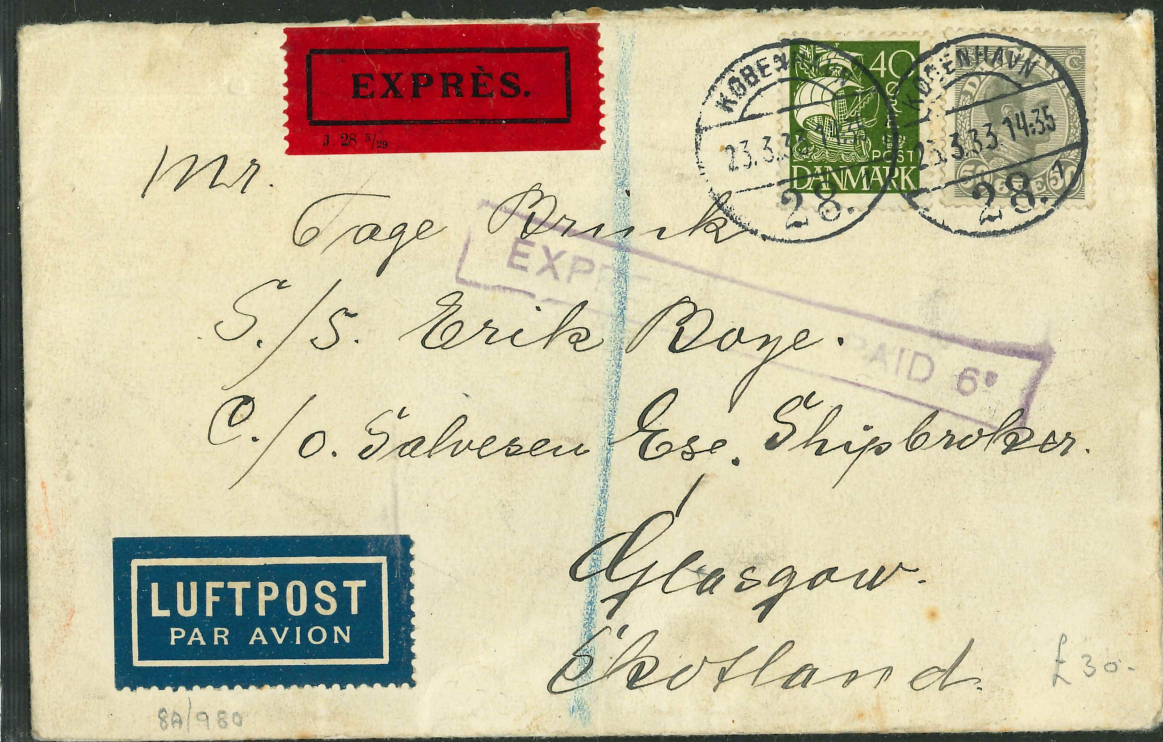 EXPRÈS.
J. 28 5/29
KØBENHAVN
23.3.33
28.
40
POST
DANMARK
KØBENHAVN
23.3.33.14-35
28.
Mr.
Tage Brink
EXPRE PAID 6ᴰ
S./S. Erik Boye.
C./o. Salvesen Esc. Shipbroker.
Glasgow.
Skotland.
LUFTPOST
PAR AVION
£30-
8A/980